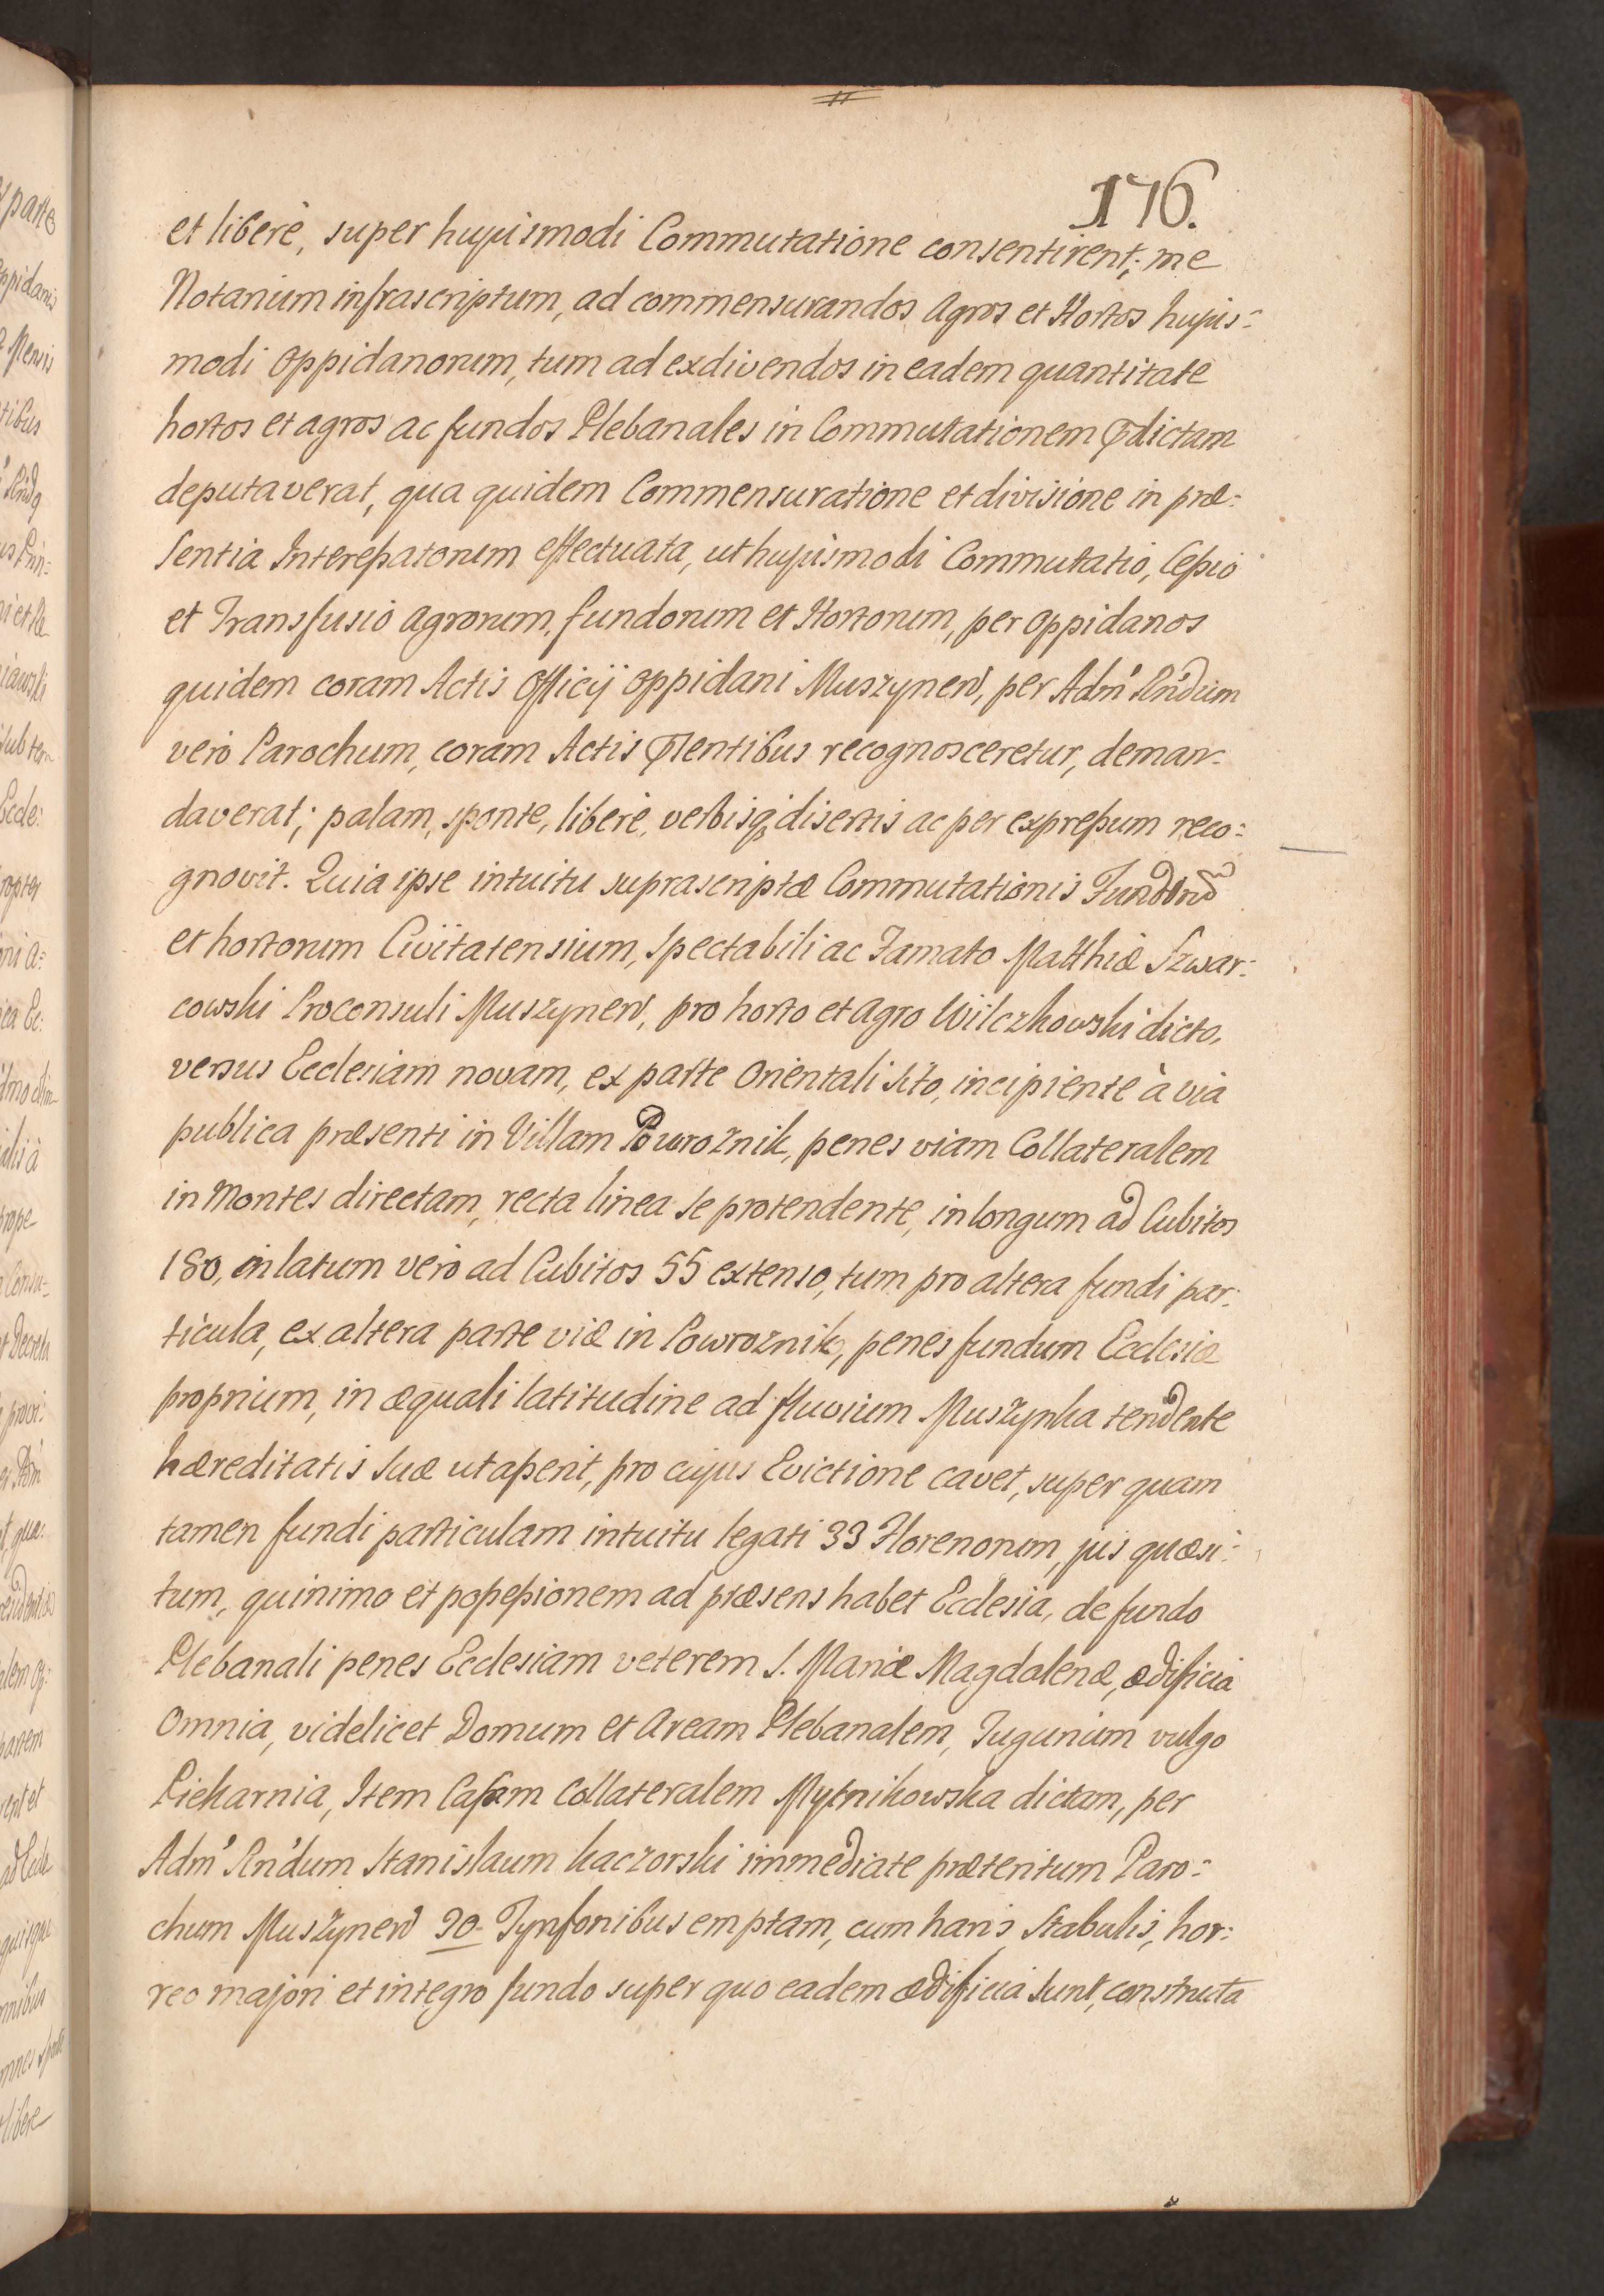 176.
et liberè, super hujusmodi Commutatione consentirent; me
Notarium infrascriptum, ad commensurandos Agros et Hortos hujus-
modi Oppidanorum, tum ad exdivendos in eadem quantitate
hortos et agros ac fundos Plebanales in Commutationem pdictam
deputaverat, qua quidem Commensuratione et divisione in præ-
sentia Interessatorum effectuata, ut hujusmodi Commutatio, Cessio
et Transfusio Agrorum, fundorum et Hortorum, per Oppidanos
quidem coram Actis Officij Oppidani Muszynen, per Adm Rndum
verò Parochum, coram Actis pntibus recognosceretur, deman-
daverat; palam, sponte, liberè, verbisq disertis ac per expressum reco-
gnovit. Quia ipse intuitu suprascriptæ Commutationis Fundor
et hortorum Civitatensium, Spectabili ac Famato Matthiæ Szwar-
cowski Proconsuli Muszynen, pro horto et Agro Wilczkowski dicto,
versus Ecclesiam novam, ex parte Orientali sito, incipiente à via
publica præsenti in Villam Powroznik, penes viam Collateralem
in Montes directam, recta linea se protendente, in longum ad Cubitos
180, in latum verò ad Cubitos 55 extenso, tum pro altera fundi par-
ticula, ex altera parte viæ in Powroznik, penes fundum Ecclesiæ
proprium, in æquali latitudine ad fluvium Muszynka tendente
hæreditatis suæ ut asserit, pro cujus Evictione cavet, super quam
tamen fundi particulam intuitu legati 33 Florenorum, jus quæsi-
tum, quinimo et possessionem ad præsens habet Ecclesia, de fundo
Plebanali penes Ecclesiam veterem S. Mariæ Magdalenæ, ædificia
Omnia, videlicet Domum et Aream Plebanalem, Tugurium vulgo
Piekarnia, Item Casam Collateralem Mytnikowska dictam, per
Adm Rndum Stanislaum Kaczorski immediate præteritum Paro-
chum Muszynen 90 Tynfonibus emptam, cum haris, Stabulis, hor-
reo majori et integro fundo super quo eadem ædificia sunt, constructa